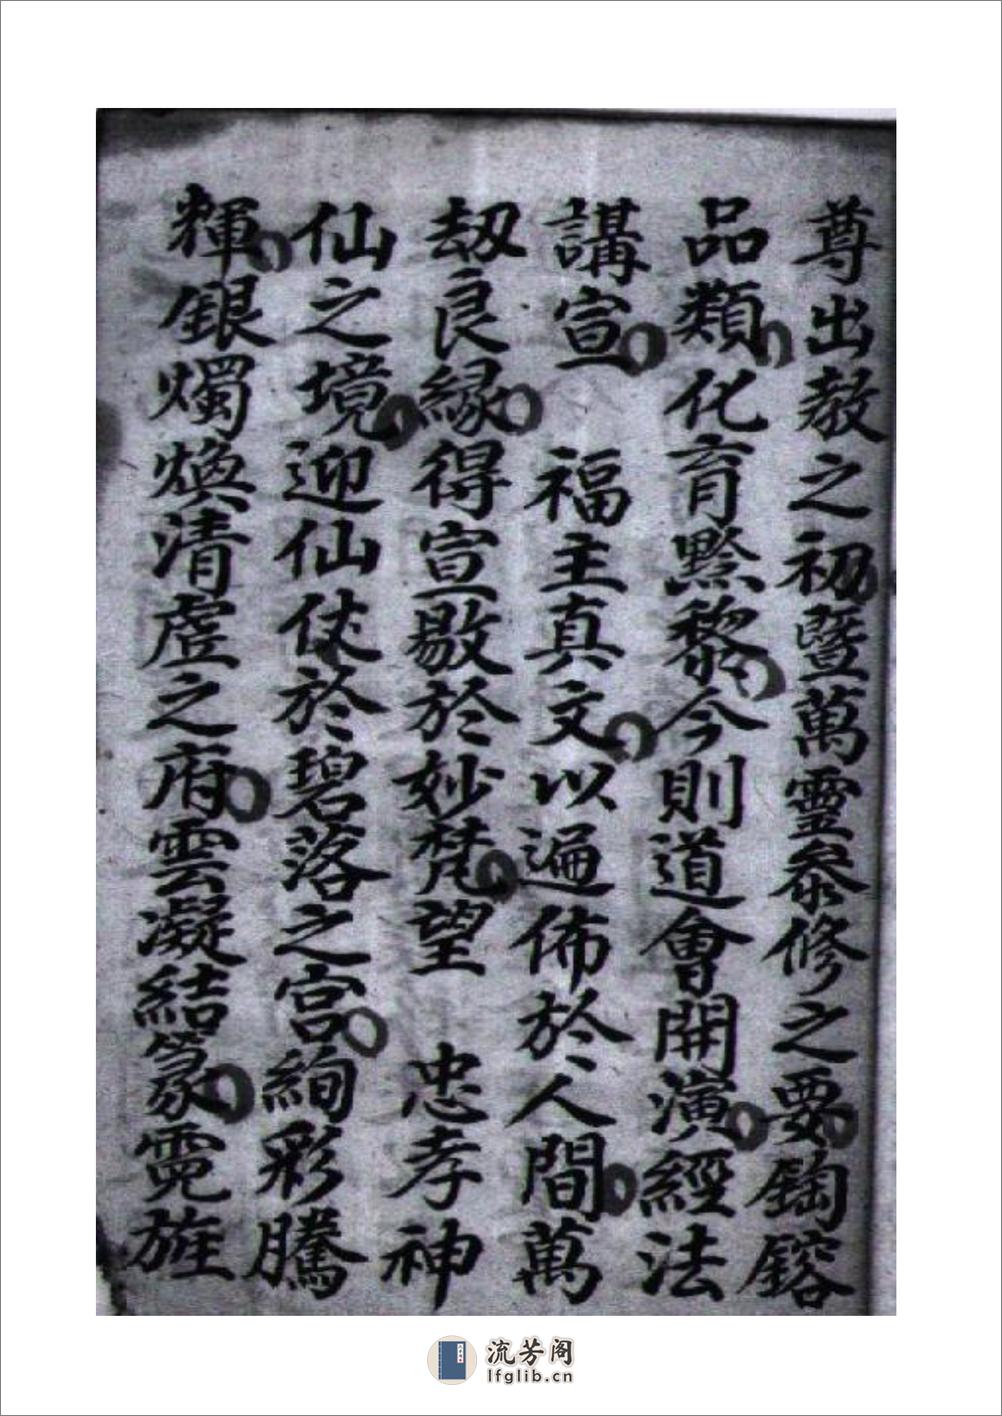 尊出教之初暨萬靈叅修之要鉤鎔
品類化育黔黎今則道會開演經法
講宣　福主真文以遍佈於人間萬
刼良緣得宣敭於妙梵望　忠孝神
仙之境迎仙仗於碧落之宮絢彩騰
輝銀燭煥清虛之府雲凝結篆霓旌
流芳阁
lfglib.cn